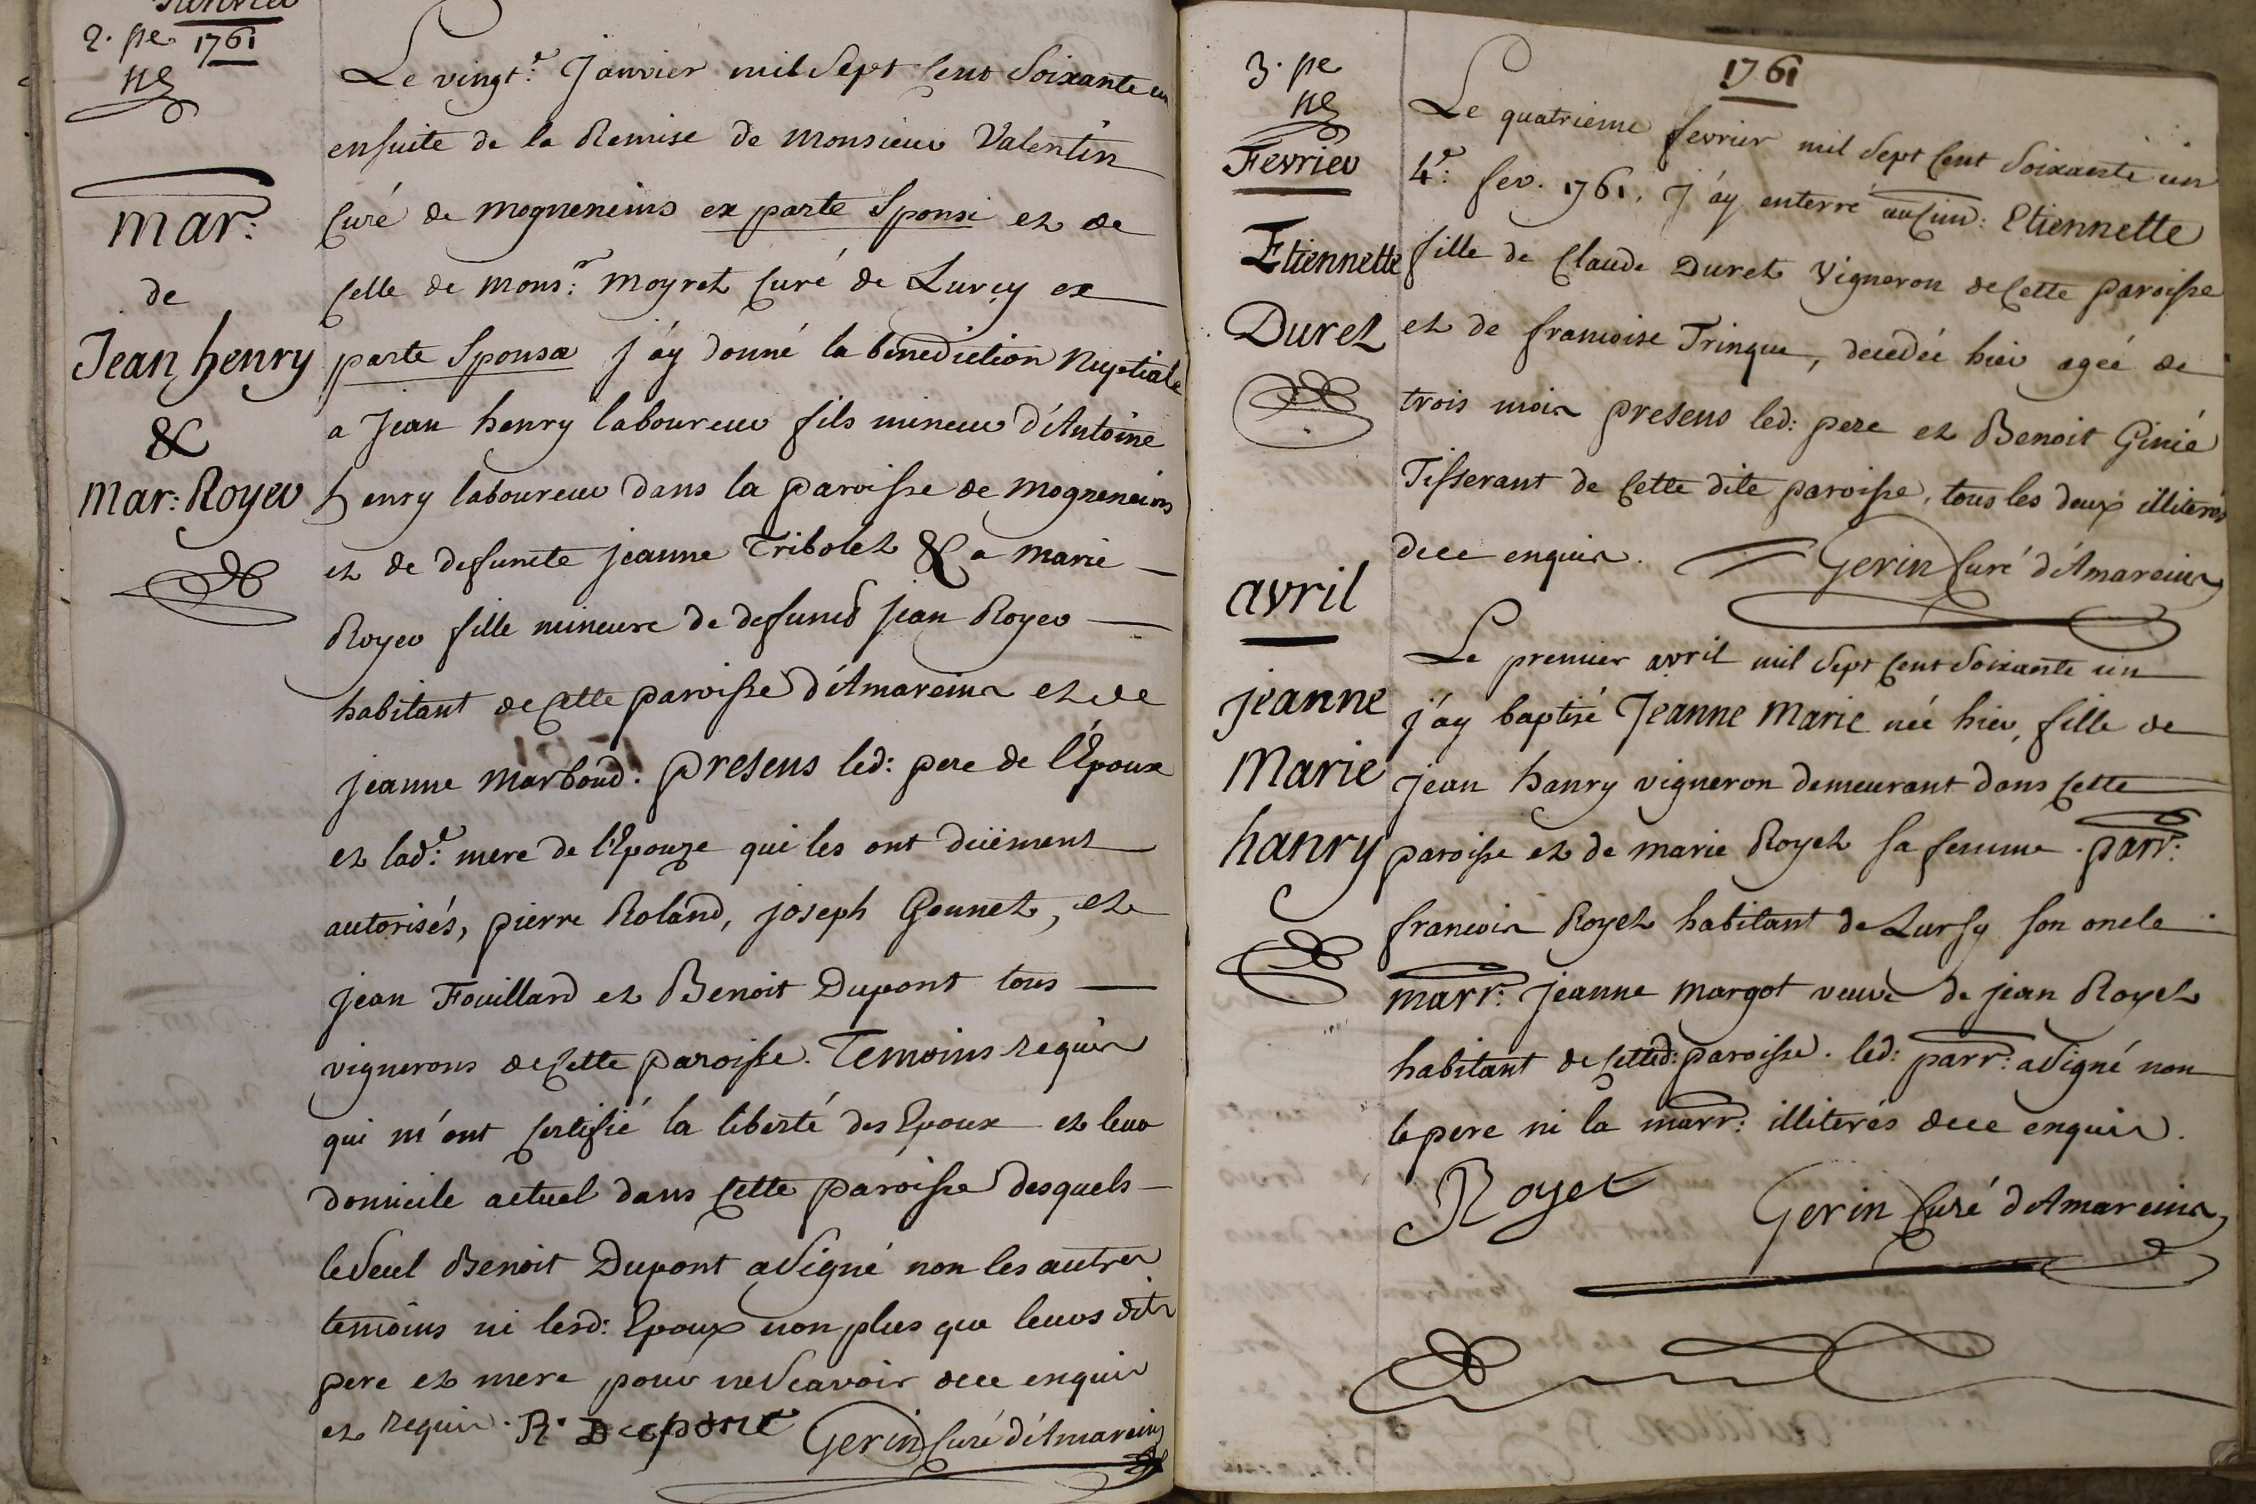 2. pe 1761
mar:
de
Jean henry
&
mar: Royer
Le vingt.e Janvier mil Sept Cent Soixante un
ensuite de la Remise de Monsieur Valentin
Curé de mogneneins ex parte Sponsi et de
Celle de Mons:r Moyret Curé de Lurcy ex
parte Sponsæ j'ay donné la benediction Nuptiale
a Jean henry laboureur fils mineur d'Antoine
henry laboureur dans la paroisse de mogneneins
et de defuncte jeanne Tribolet & a marie
Royer fille mineure de defunct jean Royer
habitant de Cette paroisse d'Amareins et de
jeanne Marboud. presens led: pere de l'Epoux
et lad:e mere de l'Epouze qui les ont düement
autorisés, pierre Roland, joseph Gounet, et
jean Fouillard et Benoit Dupont tous
vignerons de Cette paroisse. Temoins requis
qui m'ont Certifié la liberté des Epoux et leur
domicile actuel dans Cette paroisse desquels
le Seul Benoit Dupont a Signé non les autres
temoins ni lesd: Epoux non plus que leurs dits
pere et mere pour ne Scavoir de ce enquis
et requis. B. Dupont Gerin Curé d'Amareins
1761
3. pe
Fevrier
Etiennette
Duret
Le quatrieme fevrier mil Sept Cent Soixante un
4.e fev. 1761. j'ay enterré au Cim: Etiennette
fille de Claude Duret Vigneron de Cette paroisse
et de francoise Trinque, decedée hier agée de
trois mois presens led: pere et Benoit Ginié
Tisserant de Cette dite paroisse, tous les deux illiterés
de ce enquis. Gerin Curé d'Amareins
avril
jeanne
Marie
hanry
Le premier avril mil Sept Cent Soixante un
j'ay baptisé Jeanne Marie née hier, fille de
jean hanry vigneron demeurant dans Cette
paroisse et de marie Royet sa femme. parr:
francois Royet habitant de Lursy son oncle
marr: jeanne Margot veuve de jean Royet
habitant de Cetted: paroisse. led: parr: a Signé non
le pere ni la marr: illiterés de ce enquis.
Royet Gerin Curé d'Amareins